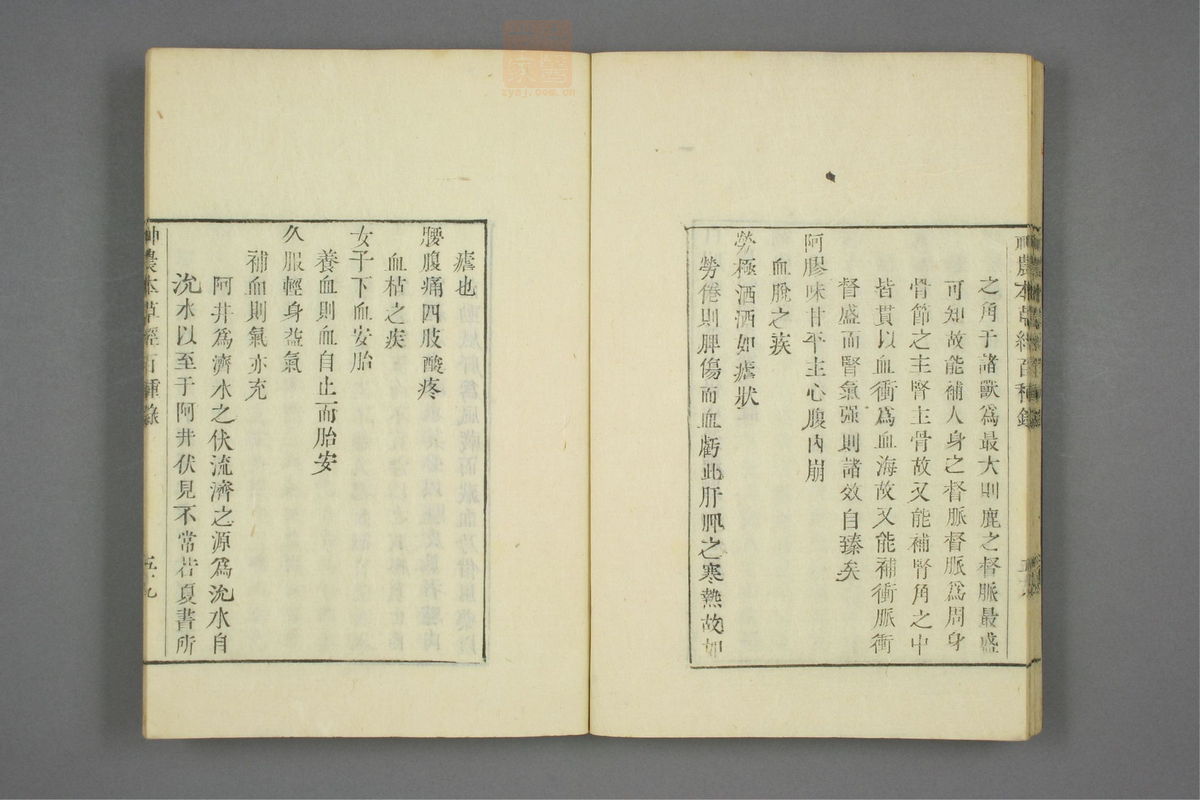 之角于諸獸為最大則鹿之督脈最盛
可知故能補人身之督脈督脈為周身
骨節之主腎主骨故又能補腎角之中
皆貫以血衝為血海故又能補衝脈衝
督盛而腎氣强則諸效自臻矣
阿膠味甘平主心腹內崩
血脫之疾
勞極洒洒如瘧狀
勞倦則脾傷而血虧此肝脾之寒熱故如
瘧也
腰腹痛四肢酸疼
血枯之疾
女子下血安胎
養血則血自止而胎安
久服輕身益氣
補血則氣亦充
阿井為濟水之伏流濟之源為沇水自
沇水以至于阿井伏見不常若夏書所
神農本草經百種錄
zysj.com.cn